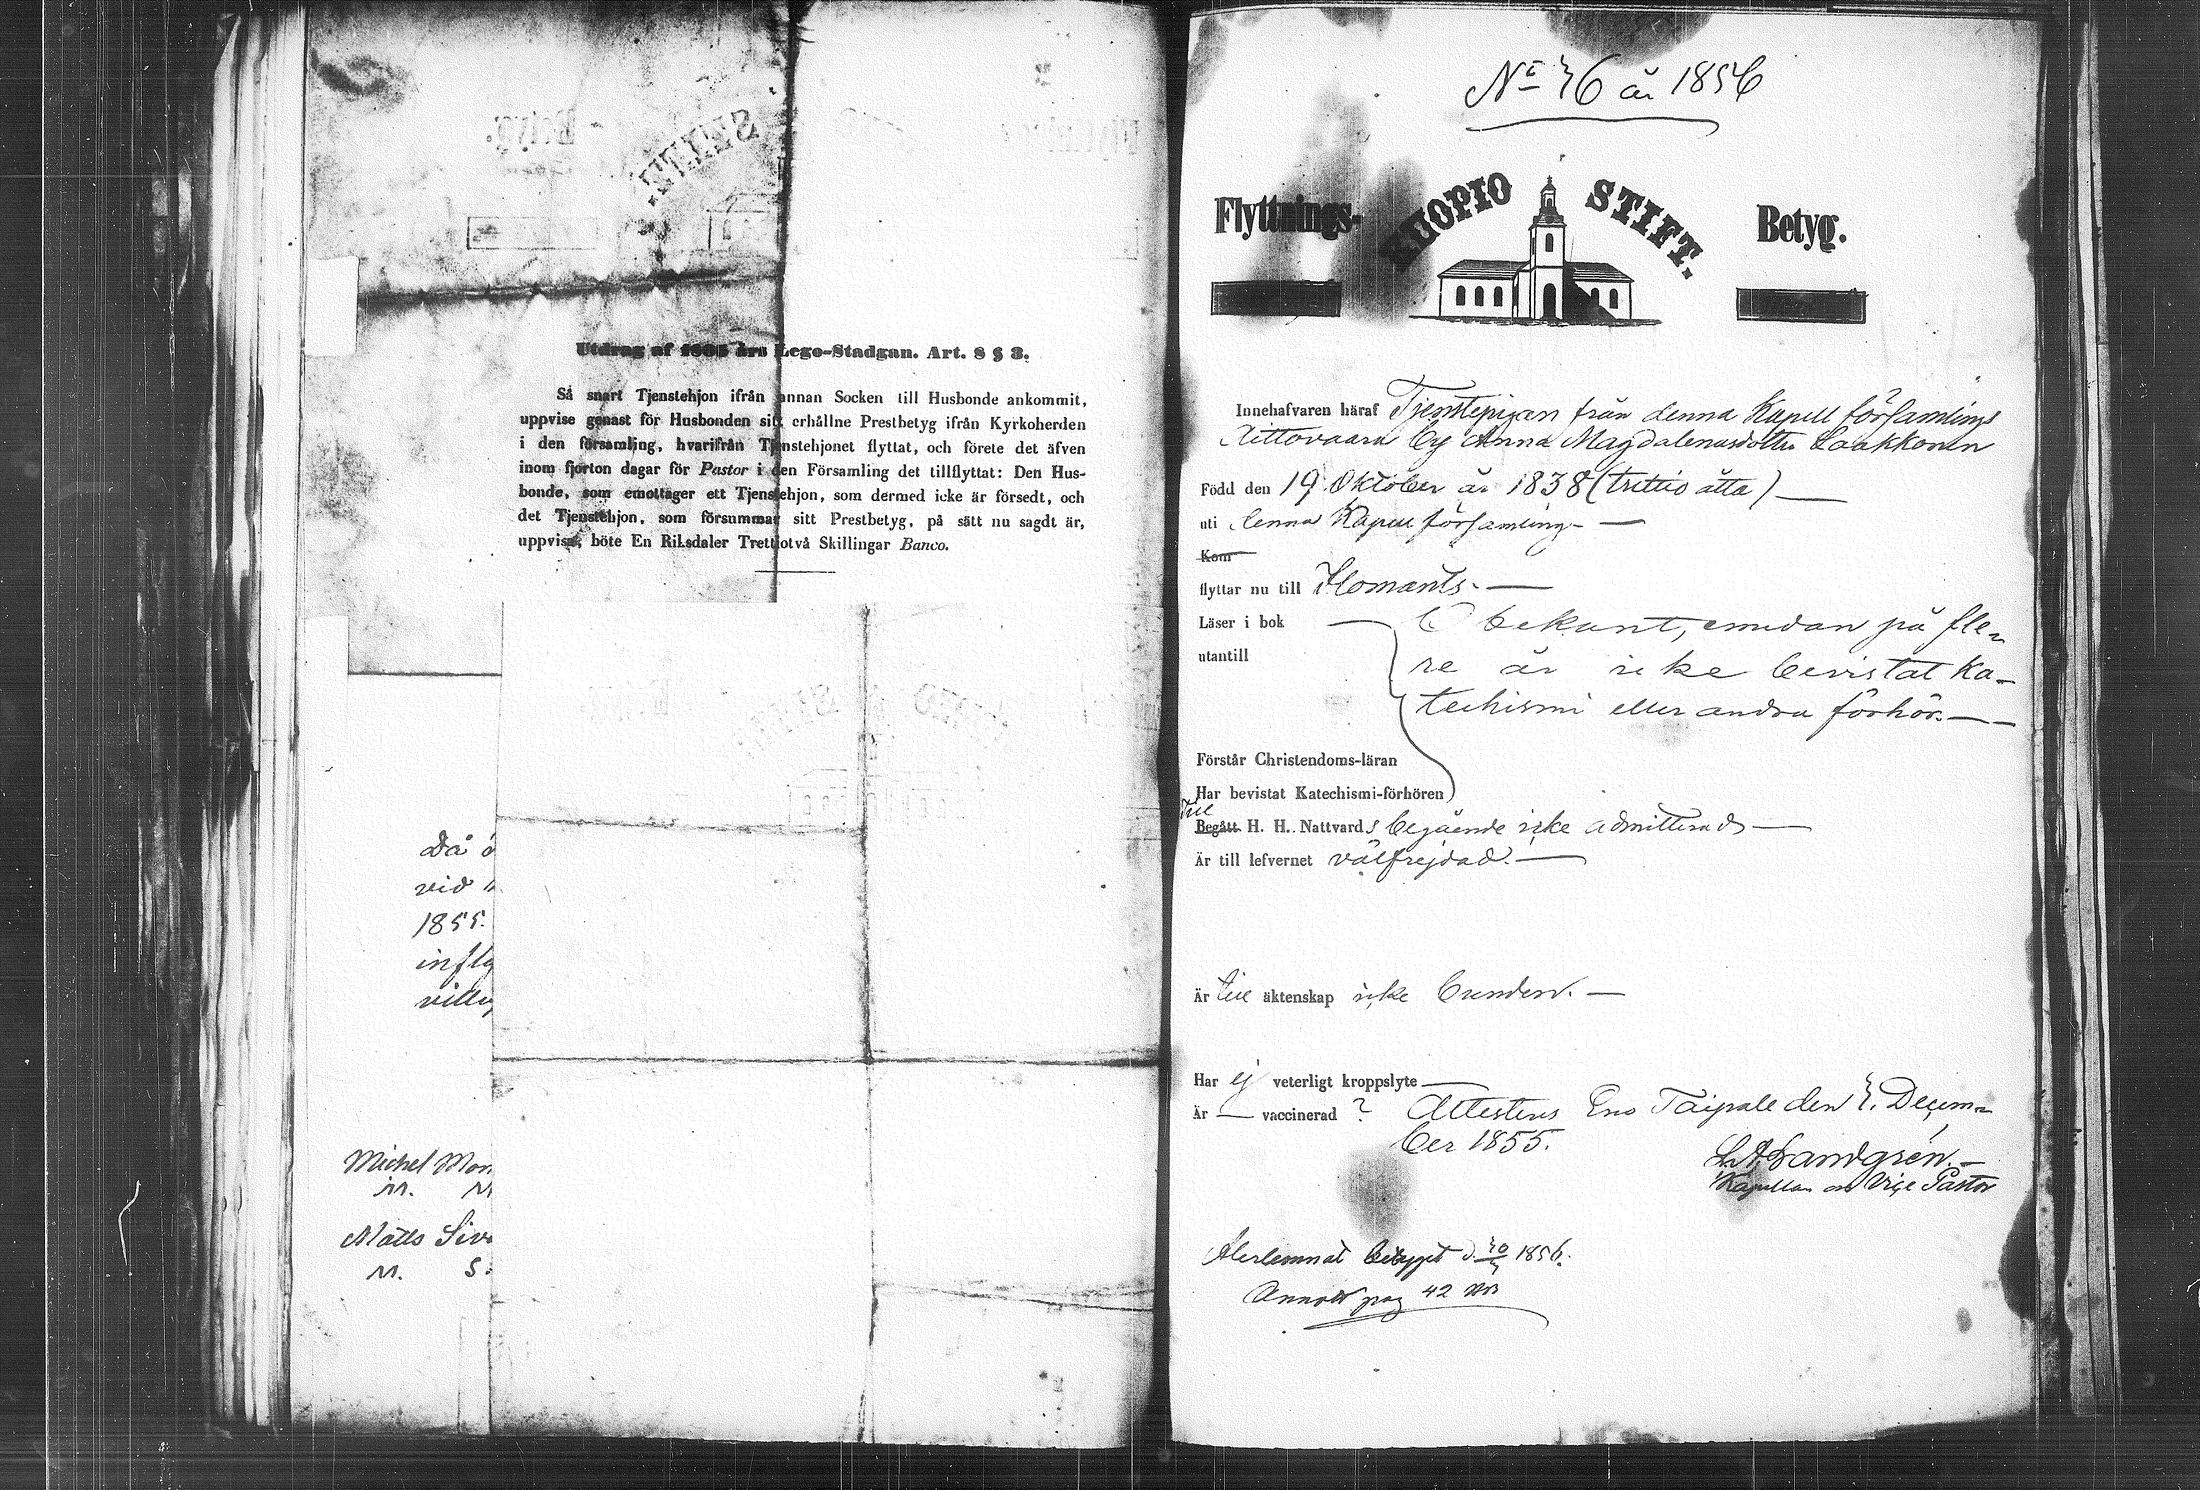 Utdrag af 1805 års Lego-Stadgan. Art. 8 § 3.
Så snart Tjenstehjon ifrån annan Socken till Husbonde ankommit,
uppvise genast för Husbonden sitt erhållne Prestbetyg ifrån Kyrkoherden
i den församling, hvarifrån Tjenstehjonet flyttat, och förete det äfven
inom fjorton dagar för Pastor i den Församling det tillflyttat: Den Hus-
bonde, som emottager ett Tjenstehjon, som dermed icke är försedt, och
det Tjenstehjon, som försummar sitt Prestbetyg, på sätt nu sagdt är,
uppvisa, böte En Riksdaler Trettiotvå Skillingar Banco.
Då
vid
1855.
infly
Michel Mon
M.
Matts Siv
M. S.
No 36 år 1856
Flyttnings- KUOPIO STIFT. Betyg.
Innehafvaren häraf Tjenstepigan från denna Kapell församlings
by Anna Magdalenasdotter Laakkonen
Född den 19 Oktober år 1838 (trettio åtta)
uti denna Kapell församling
Kom
flyttar nu till Ilomants.
Läser i bok Obekant, emedan på fle-
utantill re år icke bevistat Ka-
techismi eller andra förhör.
Förstår Christendoms-läran
Har bevistat Katechismi-förhören
Till
Begått H. H. Nattvards begående icke admitterad
Är till lefvernet välfrejdad.
Är till äktenskap icke bunden.
Har ej veterligt kroppslyte
Är vaccinerad ? Attesteras Eno Taipale den 3. Decem-
ber 1855.
Sandgrén.
Kapellan och Vice Pastor
Aflemnat betyget d. 1856.
Annot pag 42